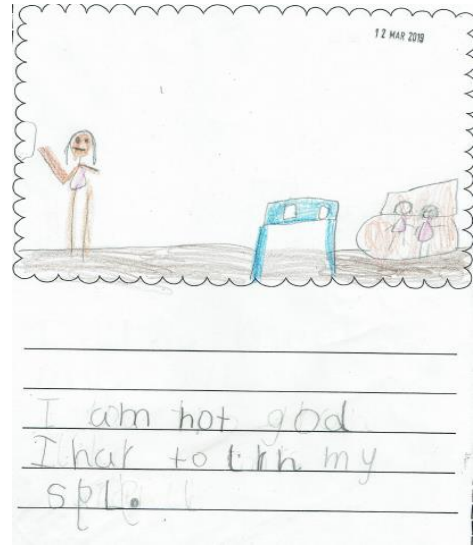 12 MAR 2019
I am not god
I haf to lrn my
spl.